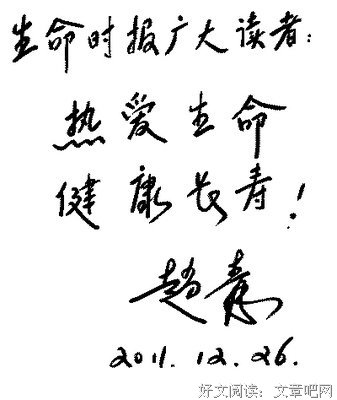 生命时报广大读者：
热爱生命
健康长寿！
赵青
2011.12.26.
好文阅读：文章吧网